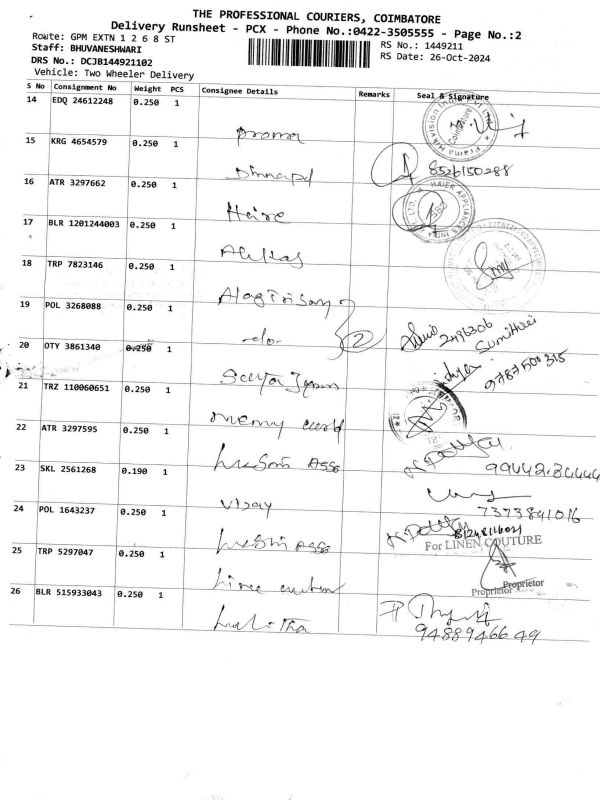 THE PROFESSIONAL COURIERS, COIMBATORE
Delivery Runsheet - PCX - Phone No.:0422-3505555 - Page No.:2
Route: GPM EXTN 1 2 6 8 ST
RS No.: 1449211
Staff: BHUVANESHWARI
RS Date: 26-Oct-2024
DRS No.: DCJB144921102
Vehicle: Two Wheeler Delivery
S No Consignment No Weight PCS Consignee Details Remarks Seal & Signature
14 EDQ 24612248 0.250 1
prama
15 KRG 4654579 0.250 1
8526150288
16 ATR 3297662 0.250 1
Haire
17 BLR 1201244003 0.250 1
18 TRP 7823146 0.250 1
19 POL 3268088 0.250 1
-do- 2
2496306
Sumithrei
20 OTY 3861340 0.250 1
9787500315
21 TRZ 110060651 0.250 1
22 ATR 3297595 0.250 1
Asso
99442-34444
23 SKL 2561268 0.190 1
vijay
7373841016
24 POL 1643237 0.250 1
Asso
8124816021
For LINEN COUTURE
25 TRP 5297047 0.250 1
Proprietor
Proprietor
26 BLR 515933043 0.250 1
Lalitha
9488946649